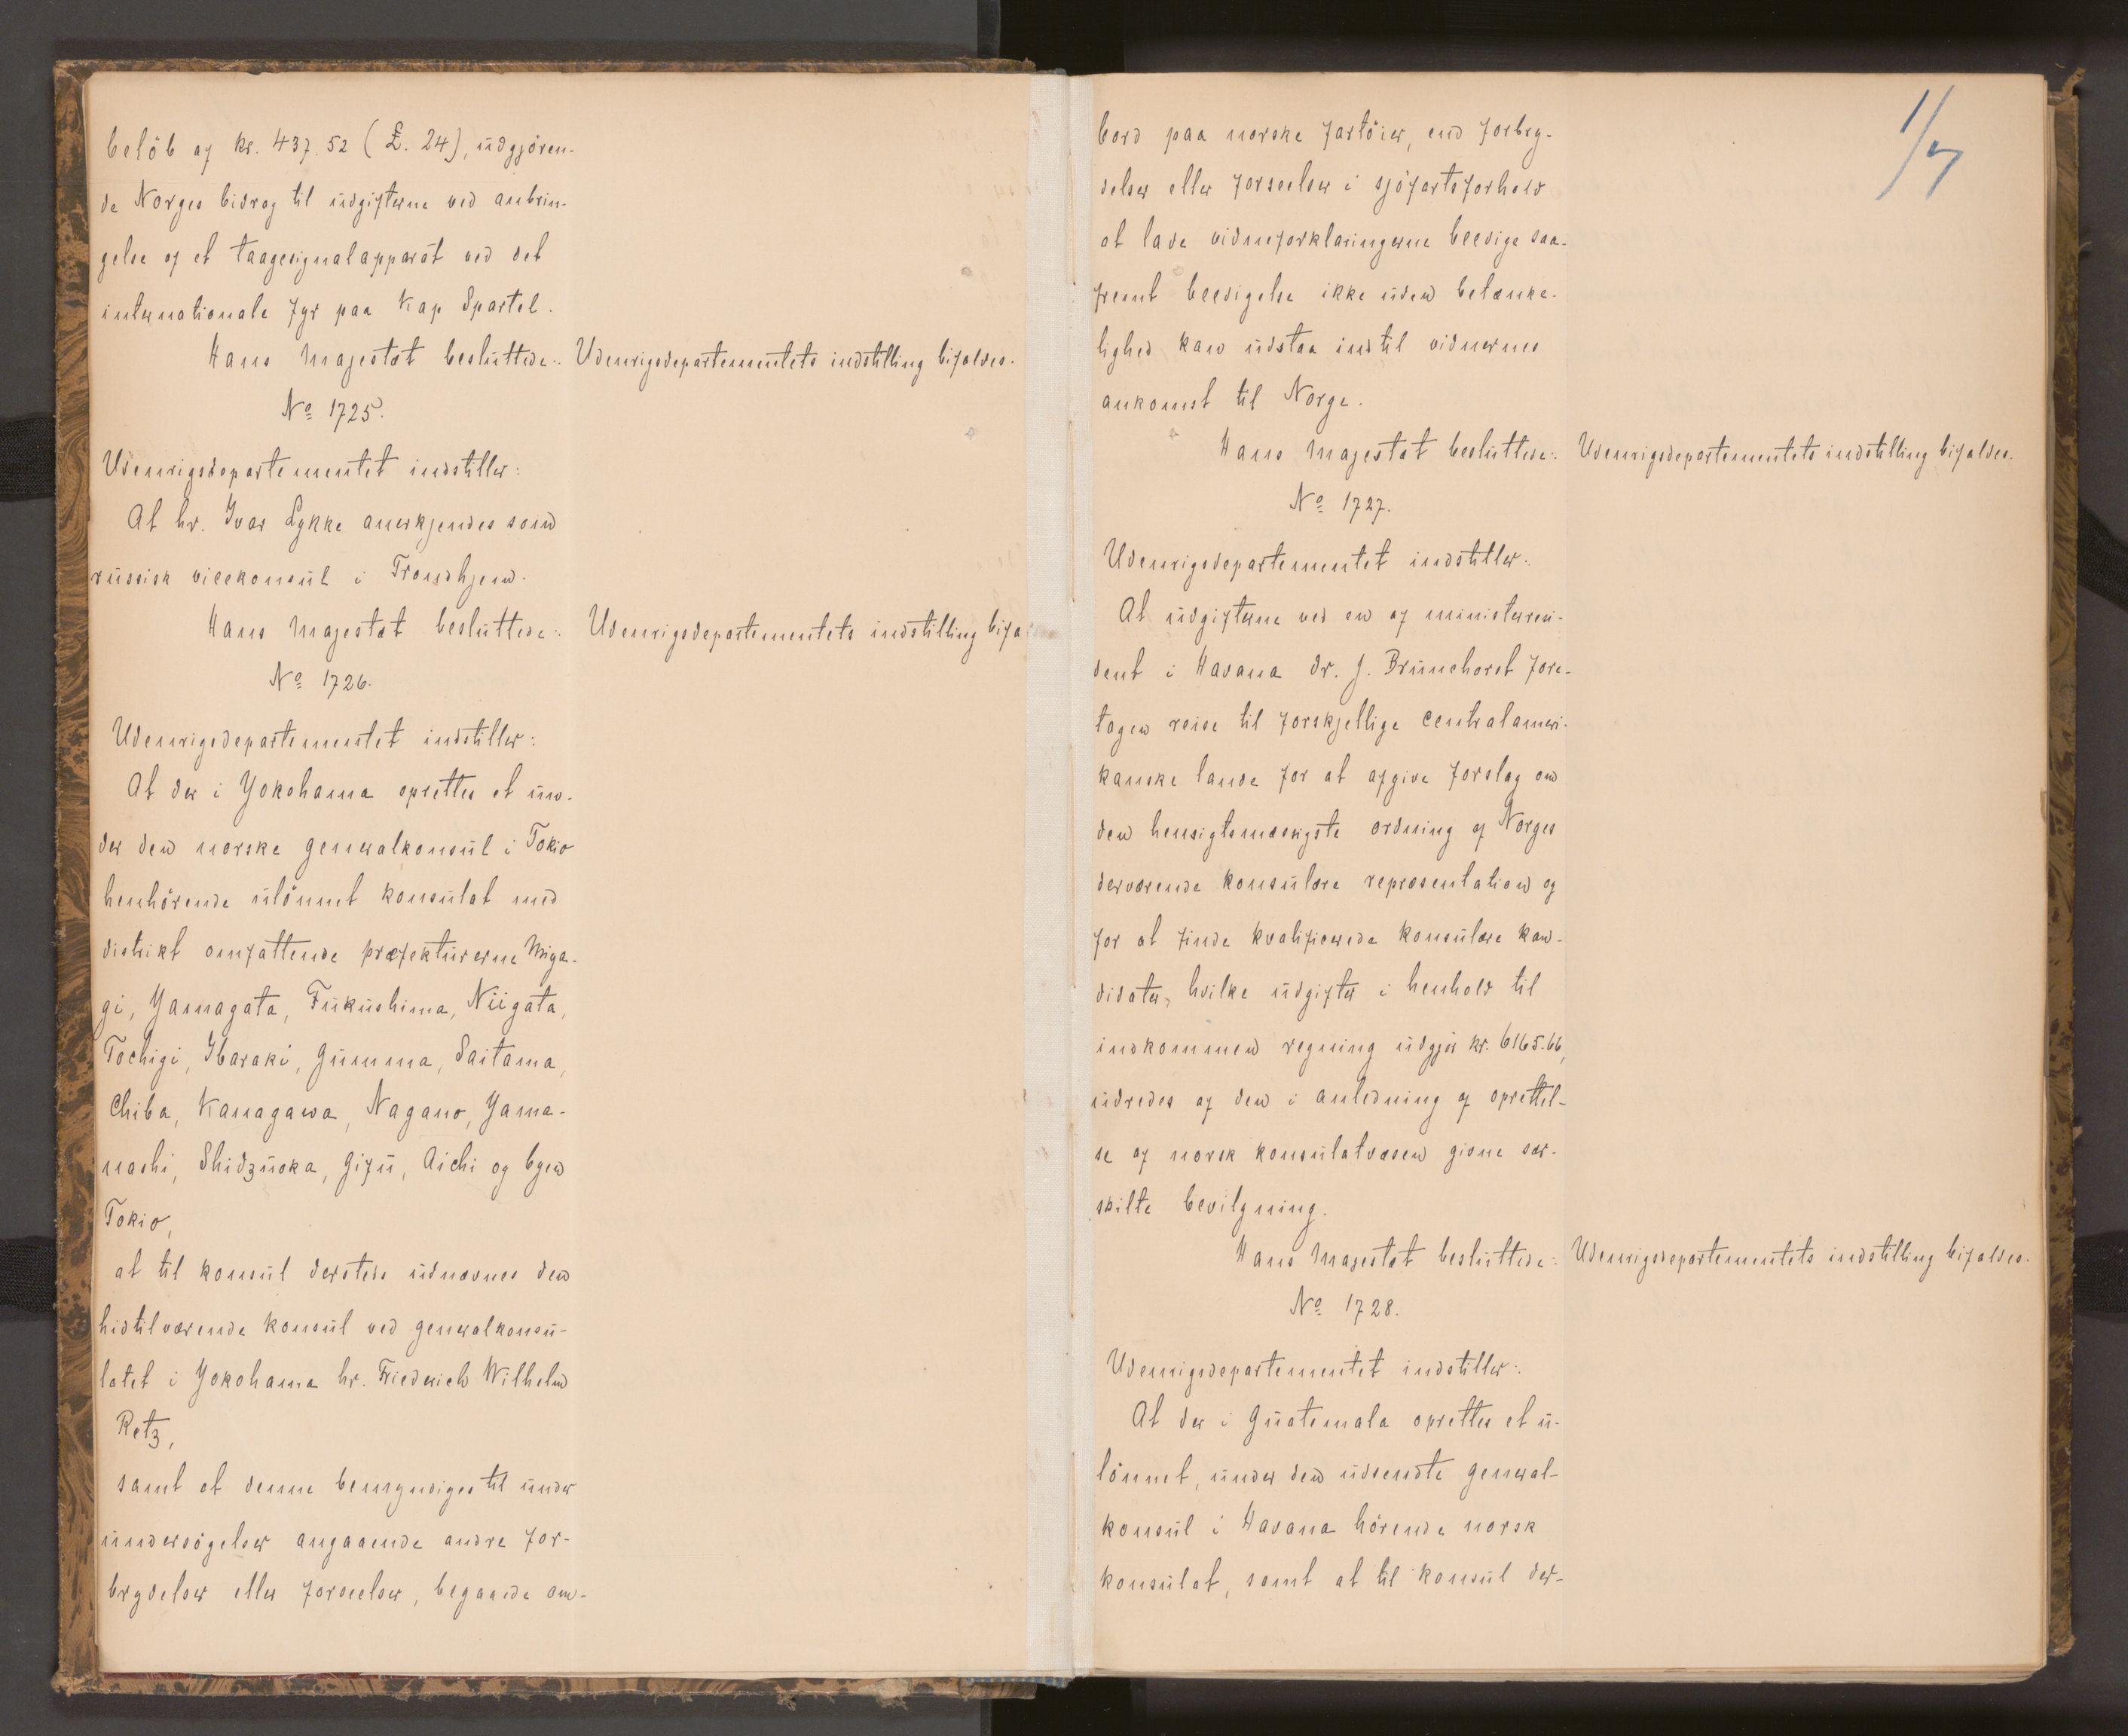 belöb af kr. 437.52 (£. 24), udgjören-
de Norges bidrag til udgifterne ved anbrin-
gelse af et taagesignalapparat ved det
internationale fyr paa Kap Spartel.
Hans Majestæt besluttede: Udenrigsdepartementets indstilling bifaldes.
No 1725.
Udenrigsdepartementet indstiller:
At hr. Ivar Lykke anerkjendes som
russisk vicekonsul i Trondhjem.
Hans Majestæt besluttede: Udenrigsdepartementets indstilling bifa
No 1726.
Udenrigsdepartementet indstiller:
At der i Yokohama oprettes et un-
der den norske generalkonsul i Tokio
henhörende ulönnet konsulat med
distrikt omfattende præfekturerne Miya-
gi, Yamagata, Fukushima, Niigata,
Tochigi, Ibaraki, Gumma, Saitama,
Chiba, Kanagawa, Nagano, Yama-
nashi, Shidzuoka, Gifu, Aichi og byen
Tokio,
at til konsul dersteds udnævnes den
hidtilværende konsul ved generalkonsu-
latet i Yokohama hr. Friedrich Wilhelm
Retz,
samt at denne bemyndiges til under
undersögelser angaaende andre for-
brydelser eller forseelser, begaaede om-
1/7
bord paa norske fartöier, end forbry-
delser eller forseelser i sjöfartsforhold
at lade vidneforklaringerne beedige saa-
fremt beedigelse ikke uden betænke-
lighed kan udstaa indtil vidnernes
ankomst til Norge.
Hans Majestæt besluttede: Udenrigsdepartementets indstilling bifaldes.
No 1727.
Udenrigsdepartementet indstiller:
At udgifterne ved en af ministerresi-
dent i Havana dr. J. Brunchorst fore-
tagen reise til forskjellige centralameri-
kanske lande for at afgive forslag om
den hensigtsmæssigste ordning af Norges
derværende konsulære repræsentation og
for at finde kvalificerede konsulære kan-
didater, hvilke udgifter i henhold til
indkommen regning udgjör kr. 6165.66,
udredes af den i anledning af oprettel-
se af norsk konsulatvæsen givne sær-
skilte bevilgning.
Hans Majestæt besluttede: Udenrigsdepartementets indstilling bifaldes.
No 1728.
Udenrigsdepartementet indstiller:
At der i Guatemala oprettes et u-
lönnet, under den udsendte general-
konsul i Havana hörende norsk
konsulat, samt at til konsul der-